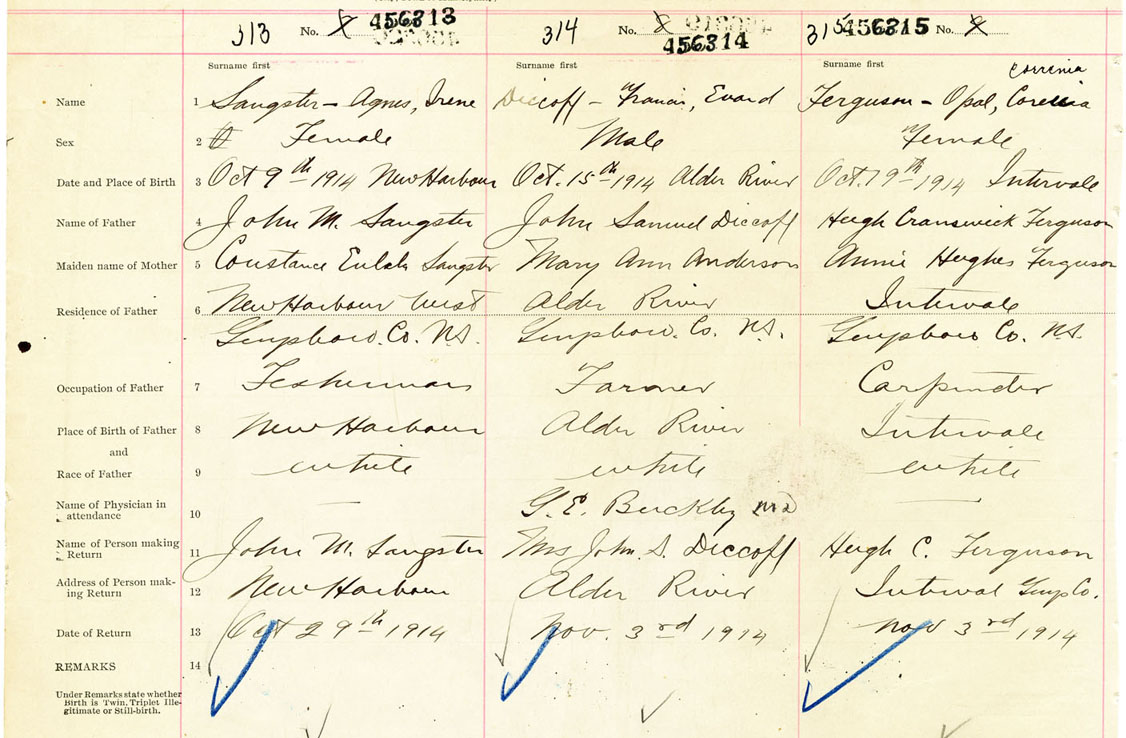 313 No. 456313
314 No. 456314
315 456315 No.
Surname first Surname first Surname first
Correnia
Name 1 Sangster - Agnes, Irene Diccoff - Francis, Evard Ferguson - Opal,
Sex 2 Female Male Female
Date and Place of Birth 3 Oct 9th 1914 New Harbour Oct. 15th 1914 Alder River Oct. 19th 1914 Intervale
Name of Father 4 John M. Sangster John Samuel Diccoff Hugh Cranswick Ferguson
Maiden name of Mother 5 Constance Eulah Sangster Mary Ann Anderson Annie Hughes Ferguson
Residence of Father 6 New Harbour West Alder River Intervale
Guysboro. Co. N.S. Guysboro Co. N.S. Guysboro Co. N.S.
Occupation of Father 7 Farmer
Place of Birth of Father 8 New Harbour Alder River Intervale
and
Race of Father 9 white white white
Name of Physician in
attendance 10 G. E. Buckley MD
Name of Person making
Return 11 John M. Sangster Mrs John S. Diccoff Hugh C. Ferguson
Address of Person mak-
ing Return 12 New Harbour Alder River Interval Guys Co.
Date of Return 13 Oct 29th 1914 Nov. 3rd 1914 Nov 3rd 1914
REMARKS 14
Under Remarks state whether
Birth is Twin, Triplet Ille-
gitimate or Still-birth.